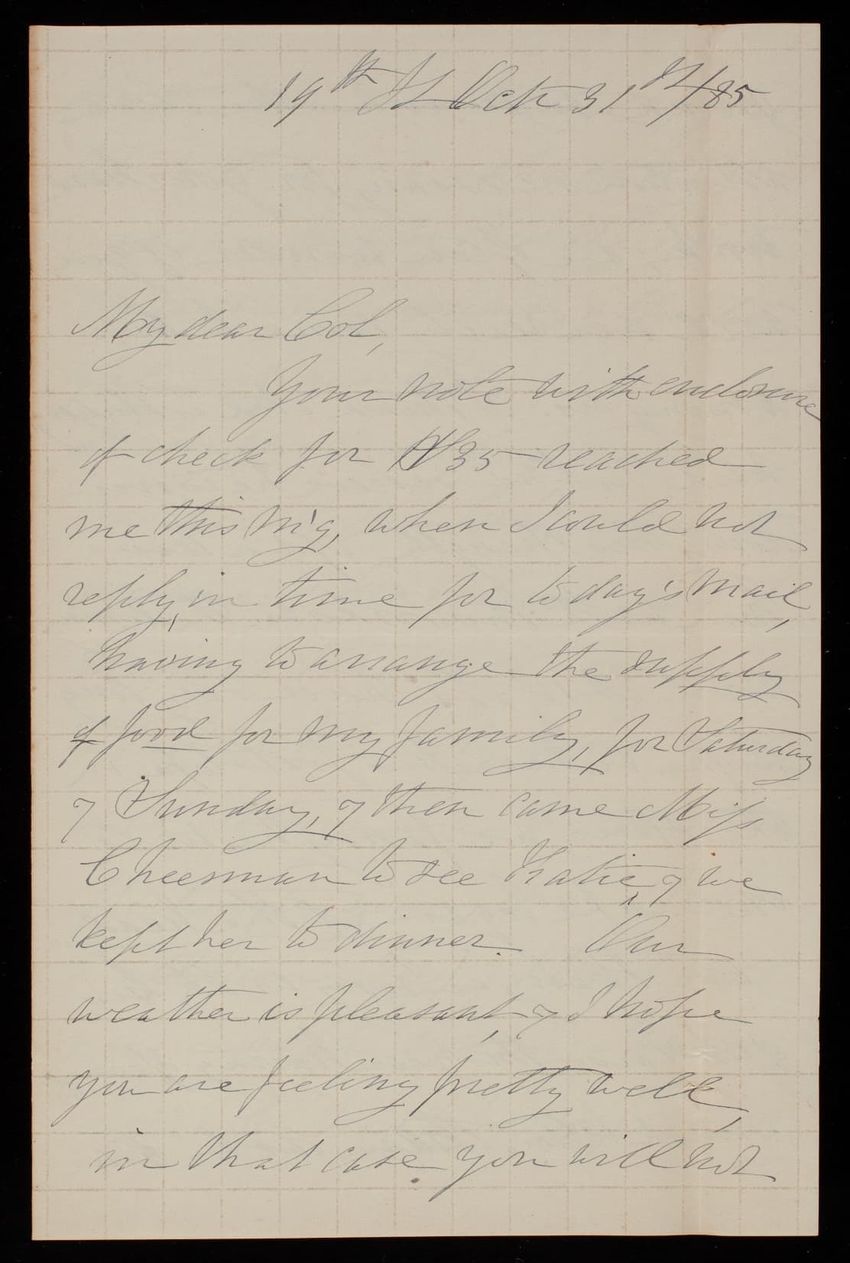 19th St Oct 31st/85
My dear Col,
Your note with enclosure
of check for $35 reached
me this m'g, when I could not
reply, in time for to day's mail,
having to arrange the supply
of food for my family, for Saturday
& Sunday, & then came Miss
Cheesman to see Katie, & we
kept her to dinner. Our
weather is pleasant, & I hope
you are feeling pretty well,
in that case you will not